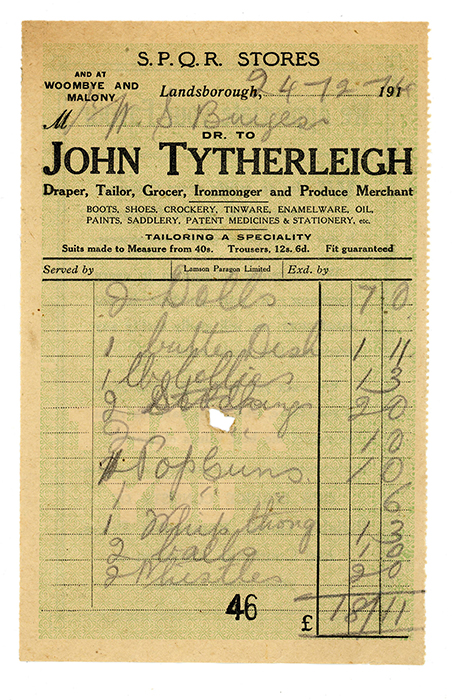 S.P.Q.R. STORES
AND AT
WOOMBYE AND
MALONY
Landsborough, 24-12-14 191
M W. S Burgess
DR. TO
JOHN TYTHERLEIGH
Draper, Tailor, Grocer, Ironmonger and Produce Merchant
BOOTS, SHOES, CROCKERY, TINWARE, ENAMELWARE, OIL,
PAINTS, SADDLERY, PATENT MEDICINES & STATIONERY, etc.
TAILORING A SPECIALITY
Suits made to Measure from 40s. Trousers, 12s. 6d. Fit guaranteed
Served by Lamson Paragon Limited Exd. by
2 Dolls 7 0
1 butter Dish 1 11
1 1 3
2 Stockings 2 0
2 1 0
Pop Guns 1 0
1 " 6
1 Whip thong 1 3
2 balls 1 0
2 Whistles 2 0
46 £ 18/11
THANK
YOU